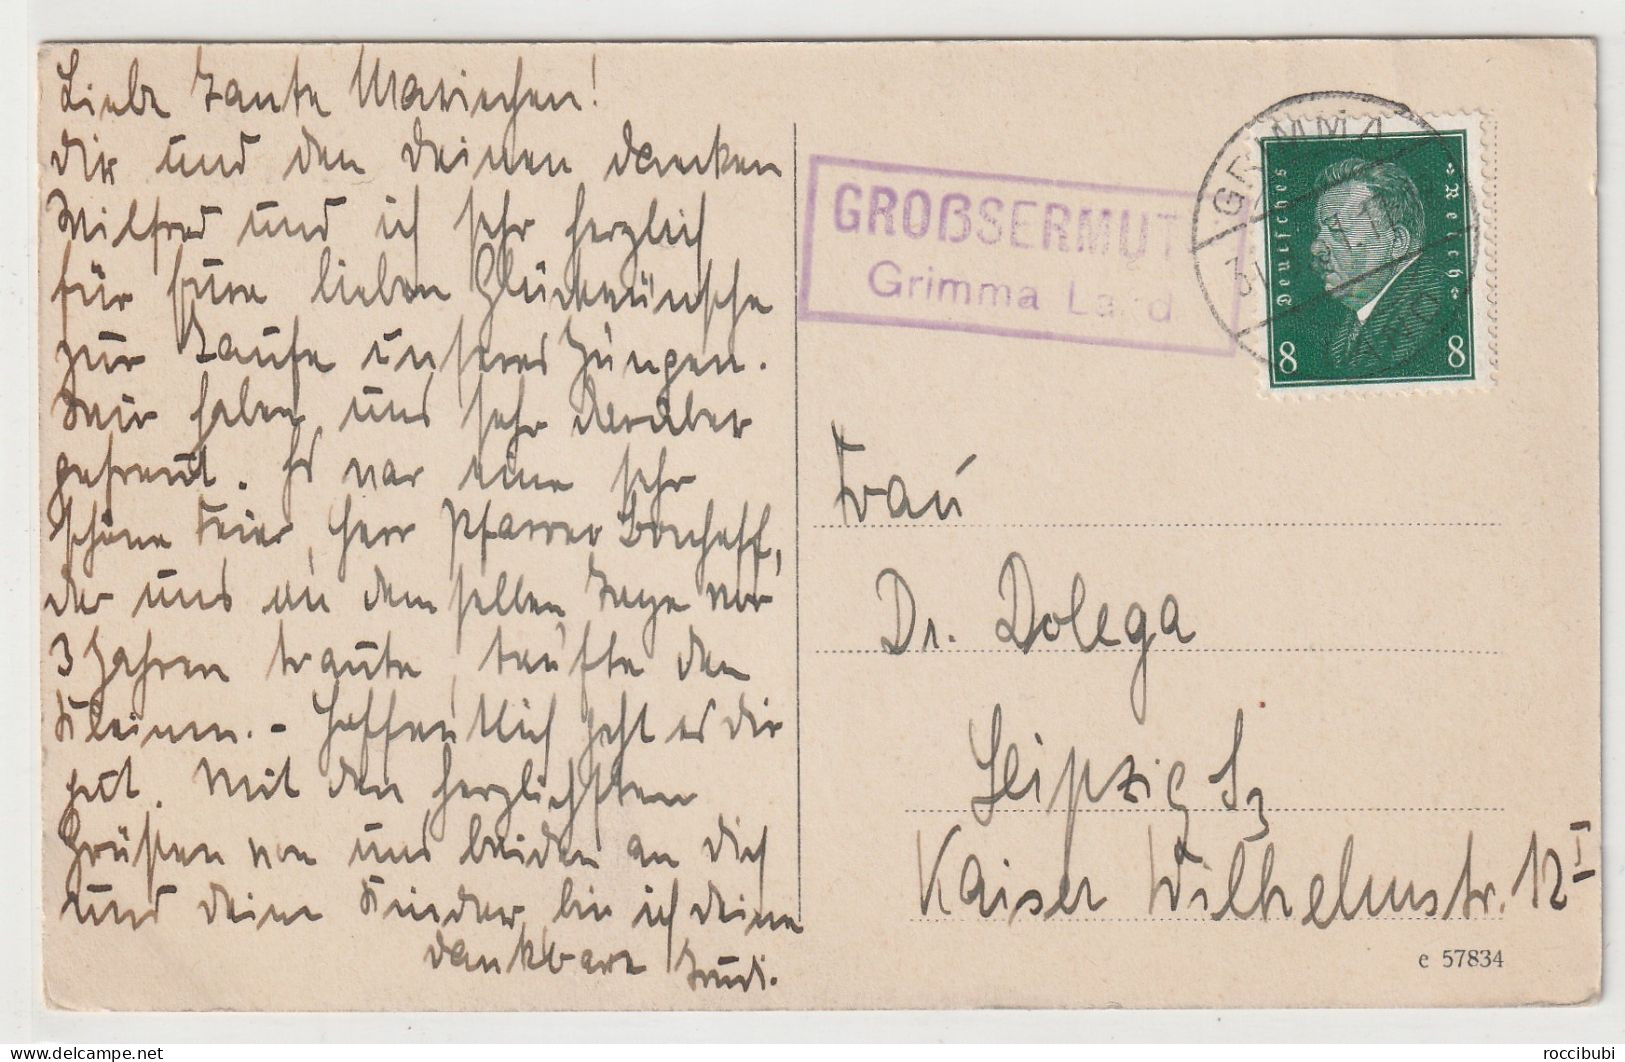 Liebe Tante Mariechen!
Dir und den Deinen danken
Wilfred und ich sehr herzlich
für Eure lieben Glückwünsche
zur Taufe unseres Jungen.
Wir haben uns sehr darüber
gefreut. Es war eine sehr
schöne Feier, Herr Pfarrer
der uns an demselben Tage vor
3 Jahren traute, taufte den
Kleinen. – Hoffentlich geht es Dir
gut. Mit den herzlichsten
Grüßen von uns beiden an Dich
und Deine Kinder bin ich Deine
dankbare Trudi.
GROßSERMUT
Grimma Land
GRIMMA
LAND
Deutsches Reich
8 8
Frau
Dr. Dolega
Leipzig S3
Kaiser Wilhelmstr. 12 I
e 57834
roccibubi
delcampe.net